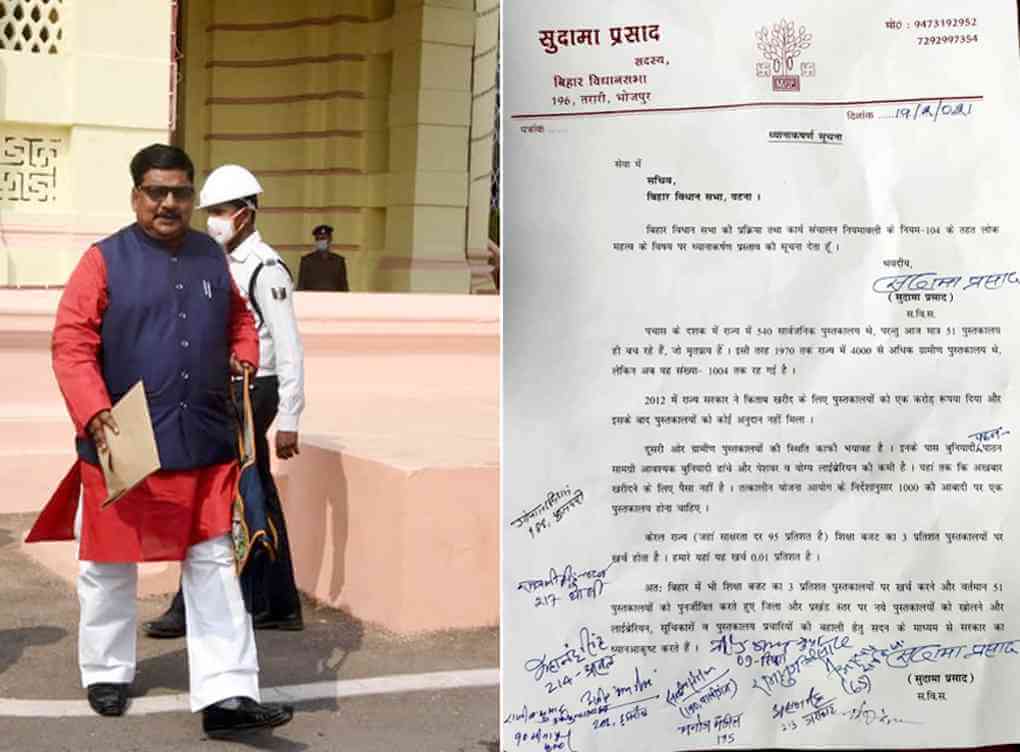 सुदामा प्रसाद
सदस्य,
बिहार विधानसभा
196, तरारी, भोजपुर
मो० : 9473192952
7292997354
पत्रांक
दिनांक ......19/2/021
ध्यानाकषर्ण सूचना
सेवा में
सचिव,
बिहार विधान सभा, पटना ।
बिहार विधान सभा की प्रक्रिया तथा कार्य संचालन नियमावली के नियम-104 के तहत लोक
महत्व के विषय पर ध्यानाकर्षण प्रस्ताव की सूचना देता हूँ ।
भवदीय,
सुदामा प्रसाद
( सुदामा प्रसाद )
स.वि.स.
पचास के दशक में राज्य में 540 सार्वजनिक पुस्तकालय थे, परन्तु आज मात्र 51 पुस्तकालय
ही बच रहे हैं, जो मृतप्राय हैं । इसी तरह 1970 तक राज्य में 4000 से अधिक ग्रामीण पुस्तकालय थे,
लेकिन अब यह संख्या- 1004 तक रह गई है ।
2012 में राज्य सरकार ने किताब खरीद के लिए पुस्तकालयों को एक करोड़ रूपया दिया और
इसके बाद पुस्तकालयों को कोई अनुदान नहीं मिला ।
दुसरी ओर ग्रामीण पुस्तकालयों की स्थिति काफी भयावह है । इनके पास बुनियादी पठन- पाठन
सामग्री आवश्यक बुनियादी ढांचे और पेशेवर व योग्य लाईब्रेरियन की कमी है । यहां तक कि अखबार
खरीदने के लिए पैसा नहीं है । तत्कालीन योजना आयोग के निर्देशानुसार 1000 की आबादी पर एक
पुस्तकालय होना चाहिए ।
केरल राज्य (जहां साक्षरता दर 95 प्रतिशत है) शिक्षा बजट का 3 प्रतिशत पुस्तकालयों पर
खर्च होता है । हमारे यहां यह खर्च 0.01 प्रतिशत है ।
अतः बिहार में भी शिक्षा बजट का 3 प्रतिशत पुस्तकालयों पर खर्च करने और वर्तमान 51
पुस्तकालयों को पुनर्जीवित करते हुए जिला और प्रखंड स्तर पर नये पुस्तकालयों को खोलने और
लाईब्रेरियन, सूचिकारों व पुस्तकालय प्रचारियों की बहाली हेतु सदन के माध्यम से सरकार का
ध्यानआकृष्ट करते हैं ।
सुदामा प्रसाद
( सुदामा प्रसाद )
स.वि.स.
217
महानंद सिंह
214-अरवल
मनोज मंजिल
195
213